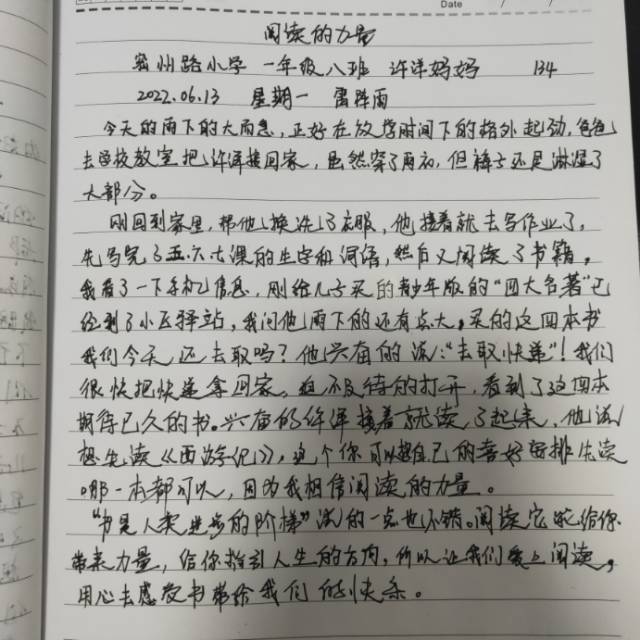 Date
阅读的力量
密州路小学 一年级八班 许洋妈妈 134
2022.06.13 星期一 雷阵雨
今天的雨下的大而急，正好在放学时间下的格外起劲，爸爸
去学校教室把许洋接回家，虽然穿了雨衣，但裤子还是淋湿了
大部分。
刚回到家里，帮他换洗了衣服，他接着就去写作业了，
先写完了五.六.七课的生字和词语，然后又阅读了书籍。
我看了一下手机信息，刚给儿子买的青少年版的“四大名著”已
经到了小区驿站，我问他雨下的还有点大，买的这四本书
我们今天还去取吗？他兴奋的说：“去取快递”！我们
很快把快递拿回家。迫不及待的打开，看到了这四本
期待已久的书。兴奋的许洋接着就读了起来，他说
想先读《西游记》，这个你可以按自己的喜好安排先读
哪一本都可以，因为我相信阅读的力量。
“书是人类进步的阶梯”说的一点也不错。阅读它能给你
带来力量，给你指引人生的方向，所以让我们爱上阅读，
用心去感受书带给我们的快乐。